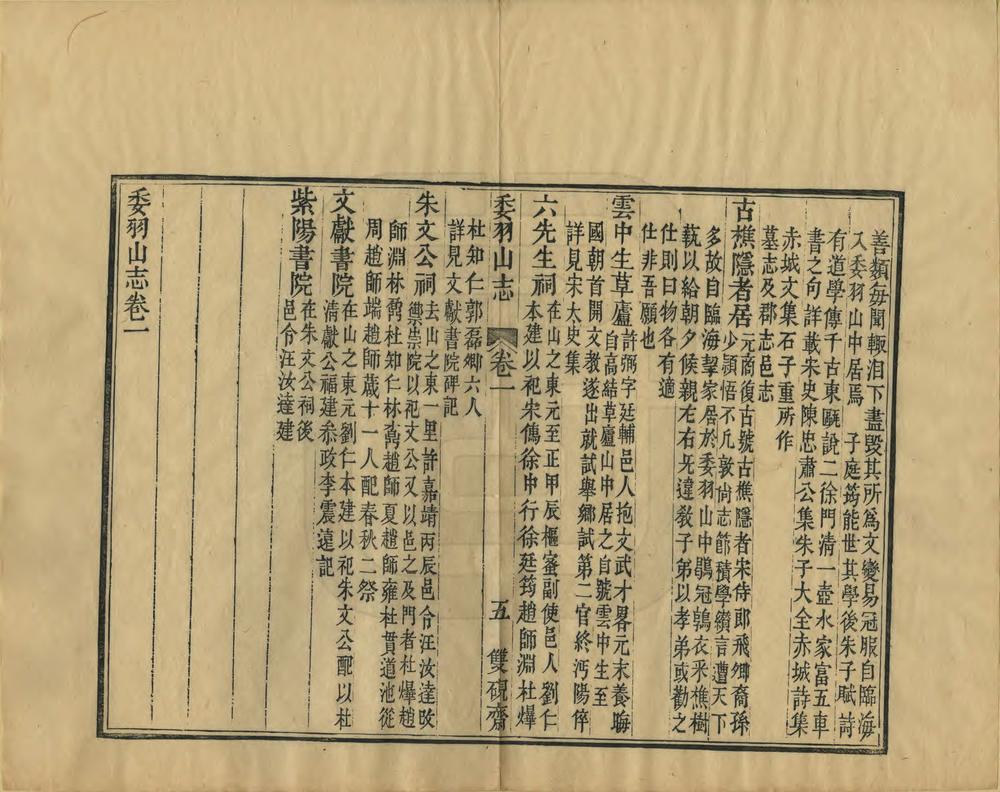 善類每聞輙泪下盡毀其所爲文變易冠服自臨海
又委羽山中居焉　子庭筠能世其學後朱子賦詩
有道學傳千古東甌說二徐門清一壺水家富五車
書之句詳載宋史陳忠肅公集朱子大全赤城詩集
赤城文集石子重所作
墓志及郡志邑志
古樵隱者居元商復古號古樵隱者宋侍郎飛卿裔孫
少頴悟不凡敦尙志節積學纘言遭天下
多故自臨海挈家居於委羽山中鶡冠鶉衣釆樵樹
蓺以給朝夕候親左右旡違敎子弟以孝弟或勸之
仕則曰物各有適
仕非吾願也
雲中生草廬許弻字廷輔邑人抱文武才畧元末養晦
自高結草廬山中居之自號雲中生至
國朝首開文敎遂出就試舉鄉試第二官終沔陽倅
詳見宋太史集
六先生祠在山之東元至正甲辰樞宻副使邑人劉仁
本建以祀朱儁徐中行徐廷筠趙師淵杜爗
委羽山志　卷二　五　雙硯齋
杜知仁郭磊卿六人
詳見文獻書院碑記
朱文公祠去山之東一里許嘉靖丙辰邑令汪汝達改
崇院以祀文公又以邑之及門者杜爗趙
師淵林鶴杜知仁林鼒趙師夏趙師雍杜貫道池從
周趙師端趙師蕆十一人配春秋二祭
文獻書院在山之東元劉仁本建以祀朱文公配以杜
清獻公福建叅政李震遠記
紫陽書院在朱文公祠後
邑令汪汝達建
委羽山志卷二